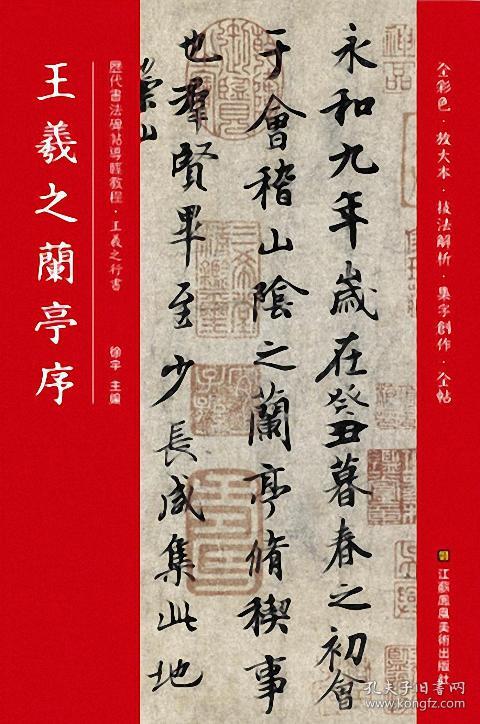 全彩色·放大本·技法解析·集字創作·全帖
江蘇鳳凰美術出版社
神品
永和九年歲在癸丑暮春之初會
于會稽山陰之蘭亭脩稧事
也羣賢畢至少長咸集此地
崇山
歷代書法碑帖導臨教程·王羲之行書
徐宇 主編
王羲之蘭亭序
孔夫子旧书网
www.kongfz.com